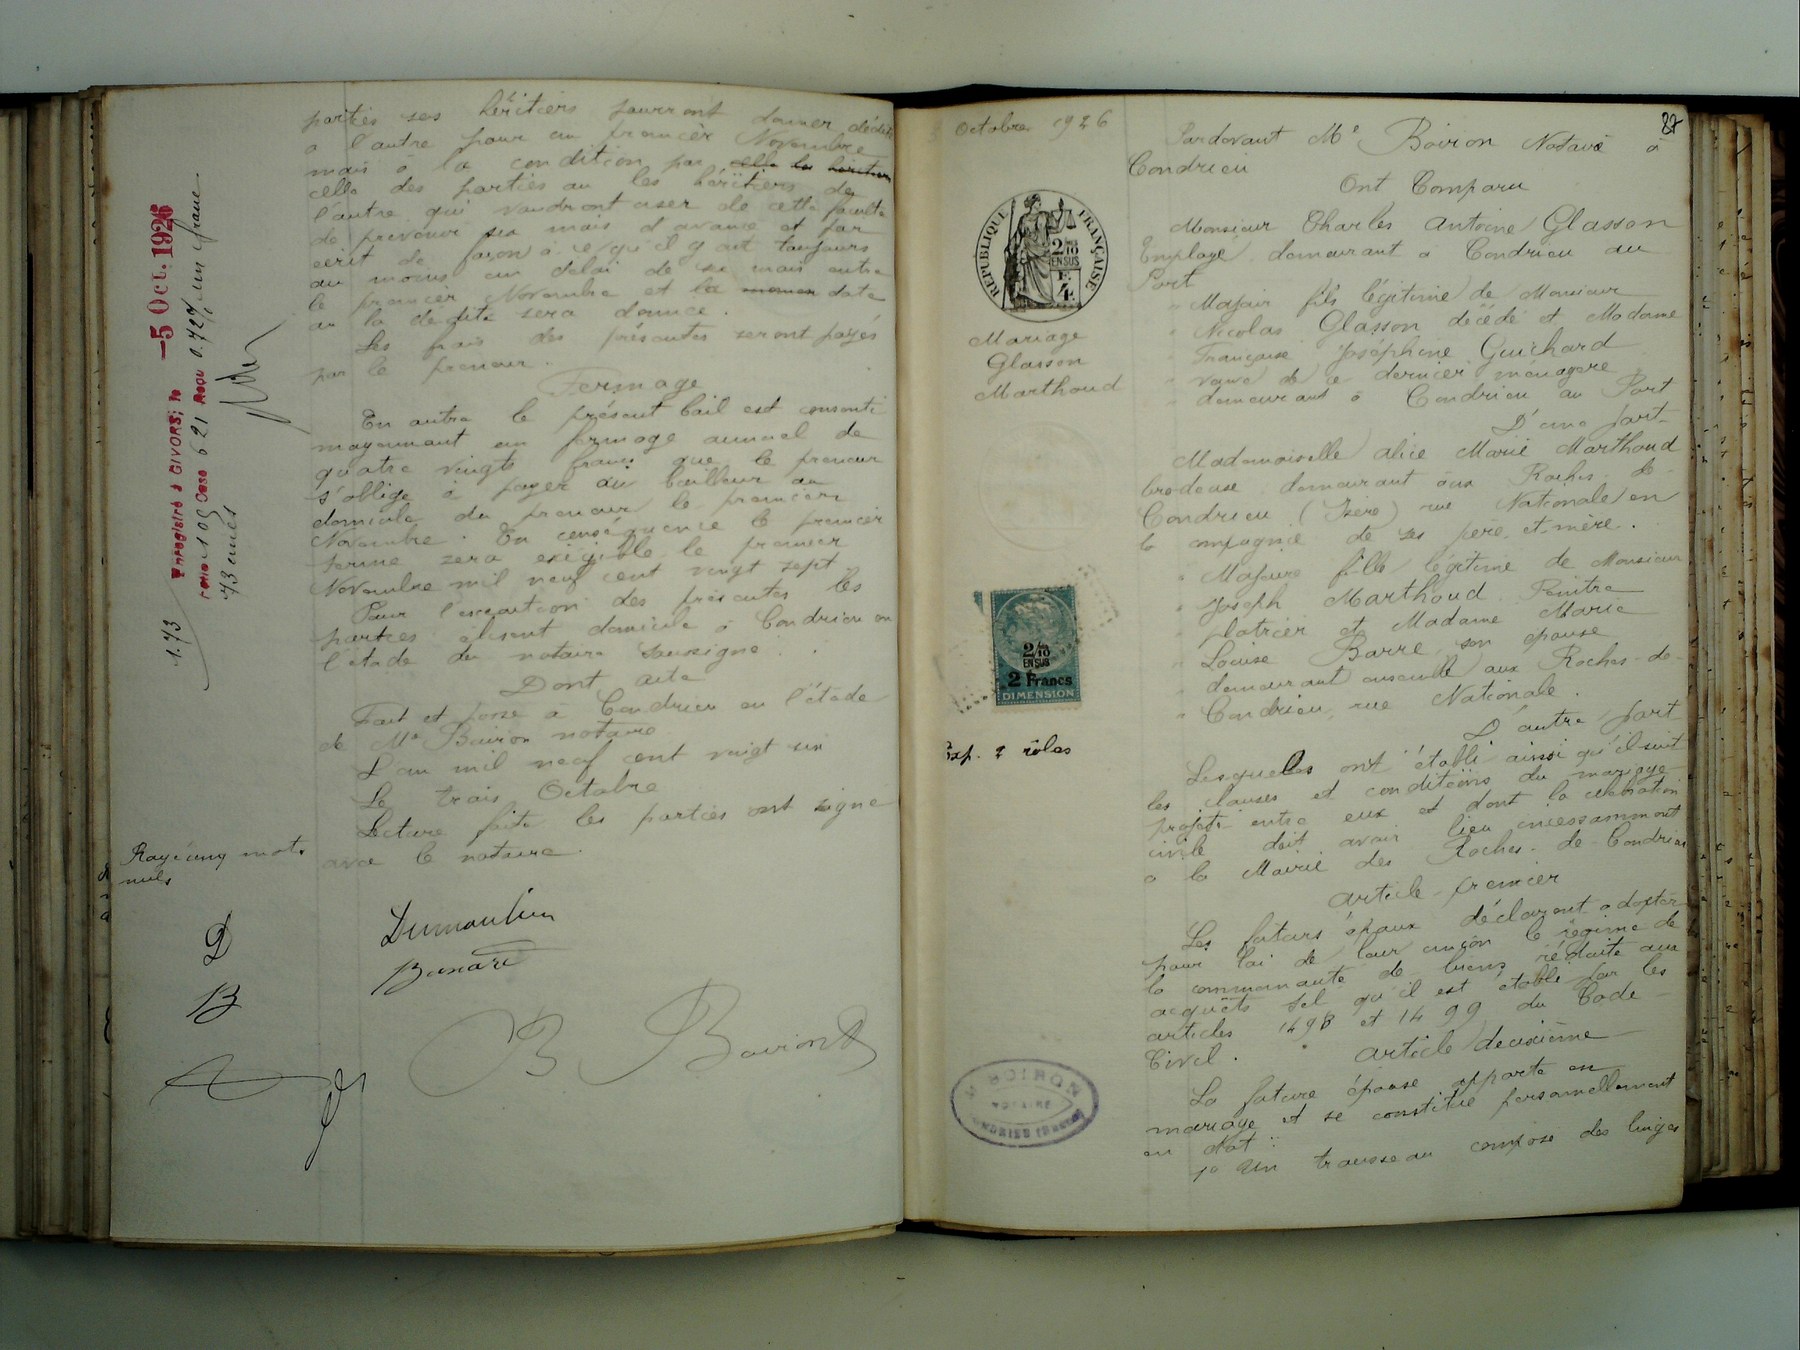 parties ses héritiers pourront donner dédit
a l'autre pour un premier Novembre
mais à la condition par celle des héritiers
celle des parties ou les héritiers de
l'autre qui voudront user de cette faculté
de prevenir six mois d'avance et par
ecrit de façon à ce qu'il y ait toujours
au moins un delai de six mois entre
le premier Novembre et la date
ou la dédite sera donnée.
Les frais des présentes seront payés
par le preneur.
Fermage
En outre le présent bail est consenti
moyennant un fermage annuel de
quatre vingts francs que le preneur
s'oblige à payer au bailleur au
domicile du preneur le premier
Novembre. En conséquence le premier
terme sera exigible le premier
Novembre mil neuf cent vingt sept.
Pour l'execution des présentes les
parties élisent domicile à Condrieu en
l'étude du notaire soussigné.
Dont acte
Fait et passé à Condrieu en l'étude
de Me Boiron notaire
L'an mil neuf cent vingt six
Le trois Octobre
Lecture faite les parties ont signé
avec le notaire.
Enregistré à GIVORS, le -5 Oct. 1926
Folio 100 Case 621 Reçu 0.72% un franc
73 cmes
1.73
Rayé cinq mots
nuls
D
B
Dumoulin
Bonard
B Boiron
Octobre 1926
87
RÉPUBLIQUE FRANÇAISE
2/10
EN SUS
F
4
Mariage
Glasson
Marthoud
2/10
EN SUS
2 Francs
DIMENSION
Exp. 2 rôles
BOIRON
NOTAIRE
CONDRIEU (RHONE)
Pardevant Me Boiron Notaire à
Condrieu
Ont Comparu
Monsieur Charles Antoine Glasson
Employé demeurant à Condrieu au
Port
" Majeur fils légitime de Monsieur
" Nicolas Glasson décédé et Madame
" Françoise Joséphine Guichard
" veuve de ce dernier ménagère
" demeurant à Condrieu au Port
D'une part
Mademoiselle alice Marie Marthoud
brodeuse demeurant aux Roches de
Condrieu (Isère) rue Nationale en
la compagnie de ses père et mère.
" Majeure fille légitime de Monsieur
" Joseph Marthoud Peintre
" platrier et Madame Marie
" Louise Barre son épouse
" demeurant ensemble aux Roches-de-
" Condrieu, rue Nationale.
D'autre part
Lesquels ont établi ainsi qu'il suit
les clauses et conditions du mariage
projeté entre eux et dont la célébration
civile doit avoir lieu incessamment
a la Mairie des Roches-de-Condrieu
article premier
Les futurs époux déclarent adopter
pour loi de leur union le régime de
la communauté de biens réduite aux
acquêts tel qu'il est établi par les
articles 1498 et 1499 du Code
Civil.
article deuxième
La future épouse apporte en
mariage et se constitue personnellement
en dot :
1° Un trousseau composé des linges